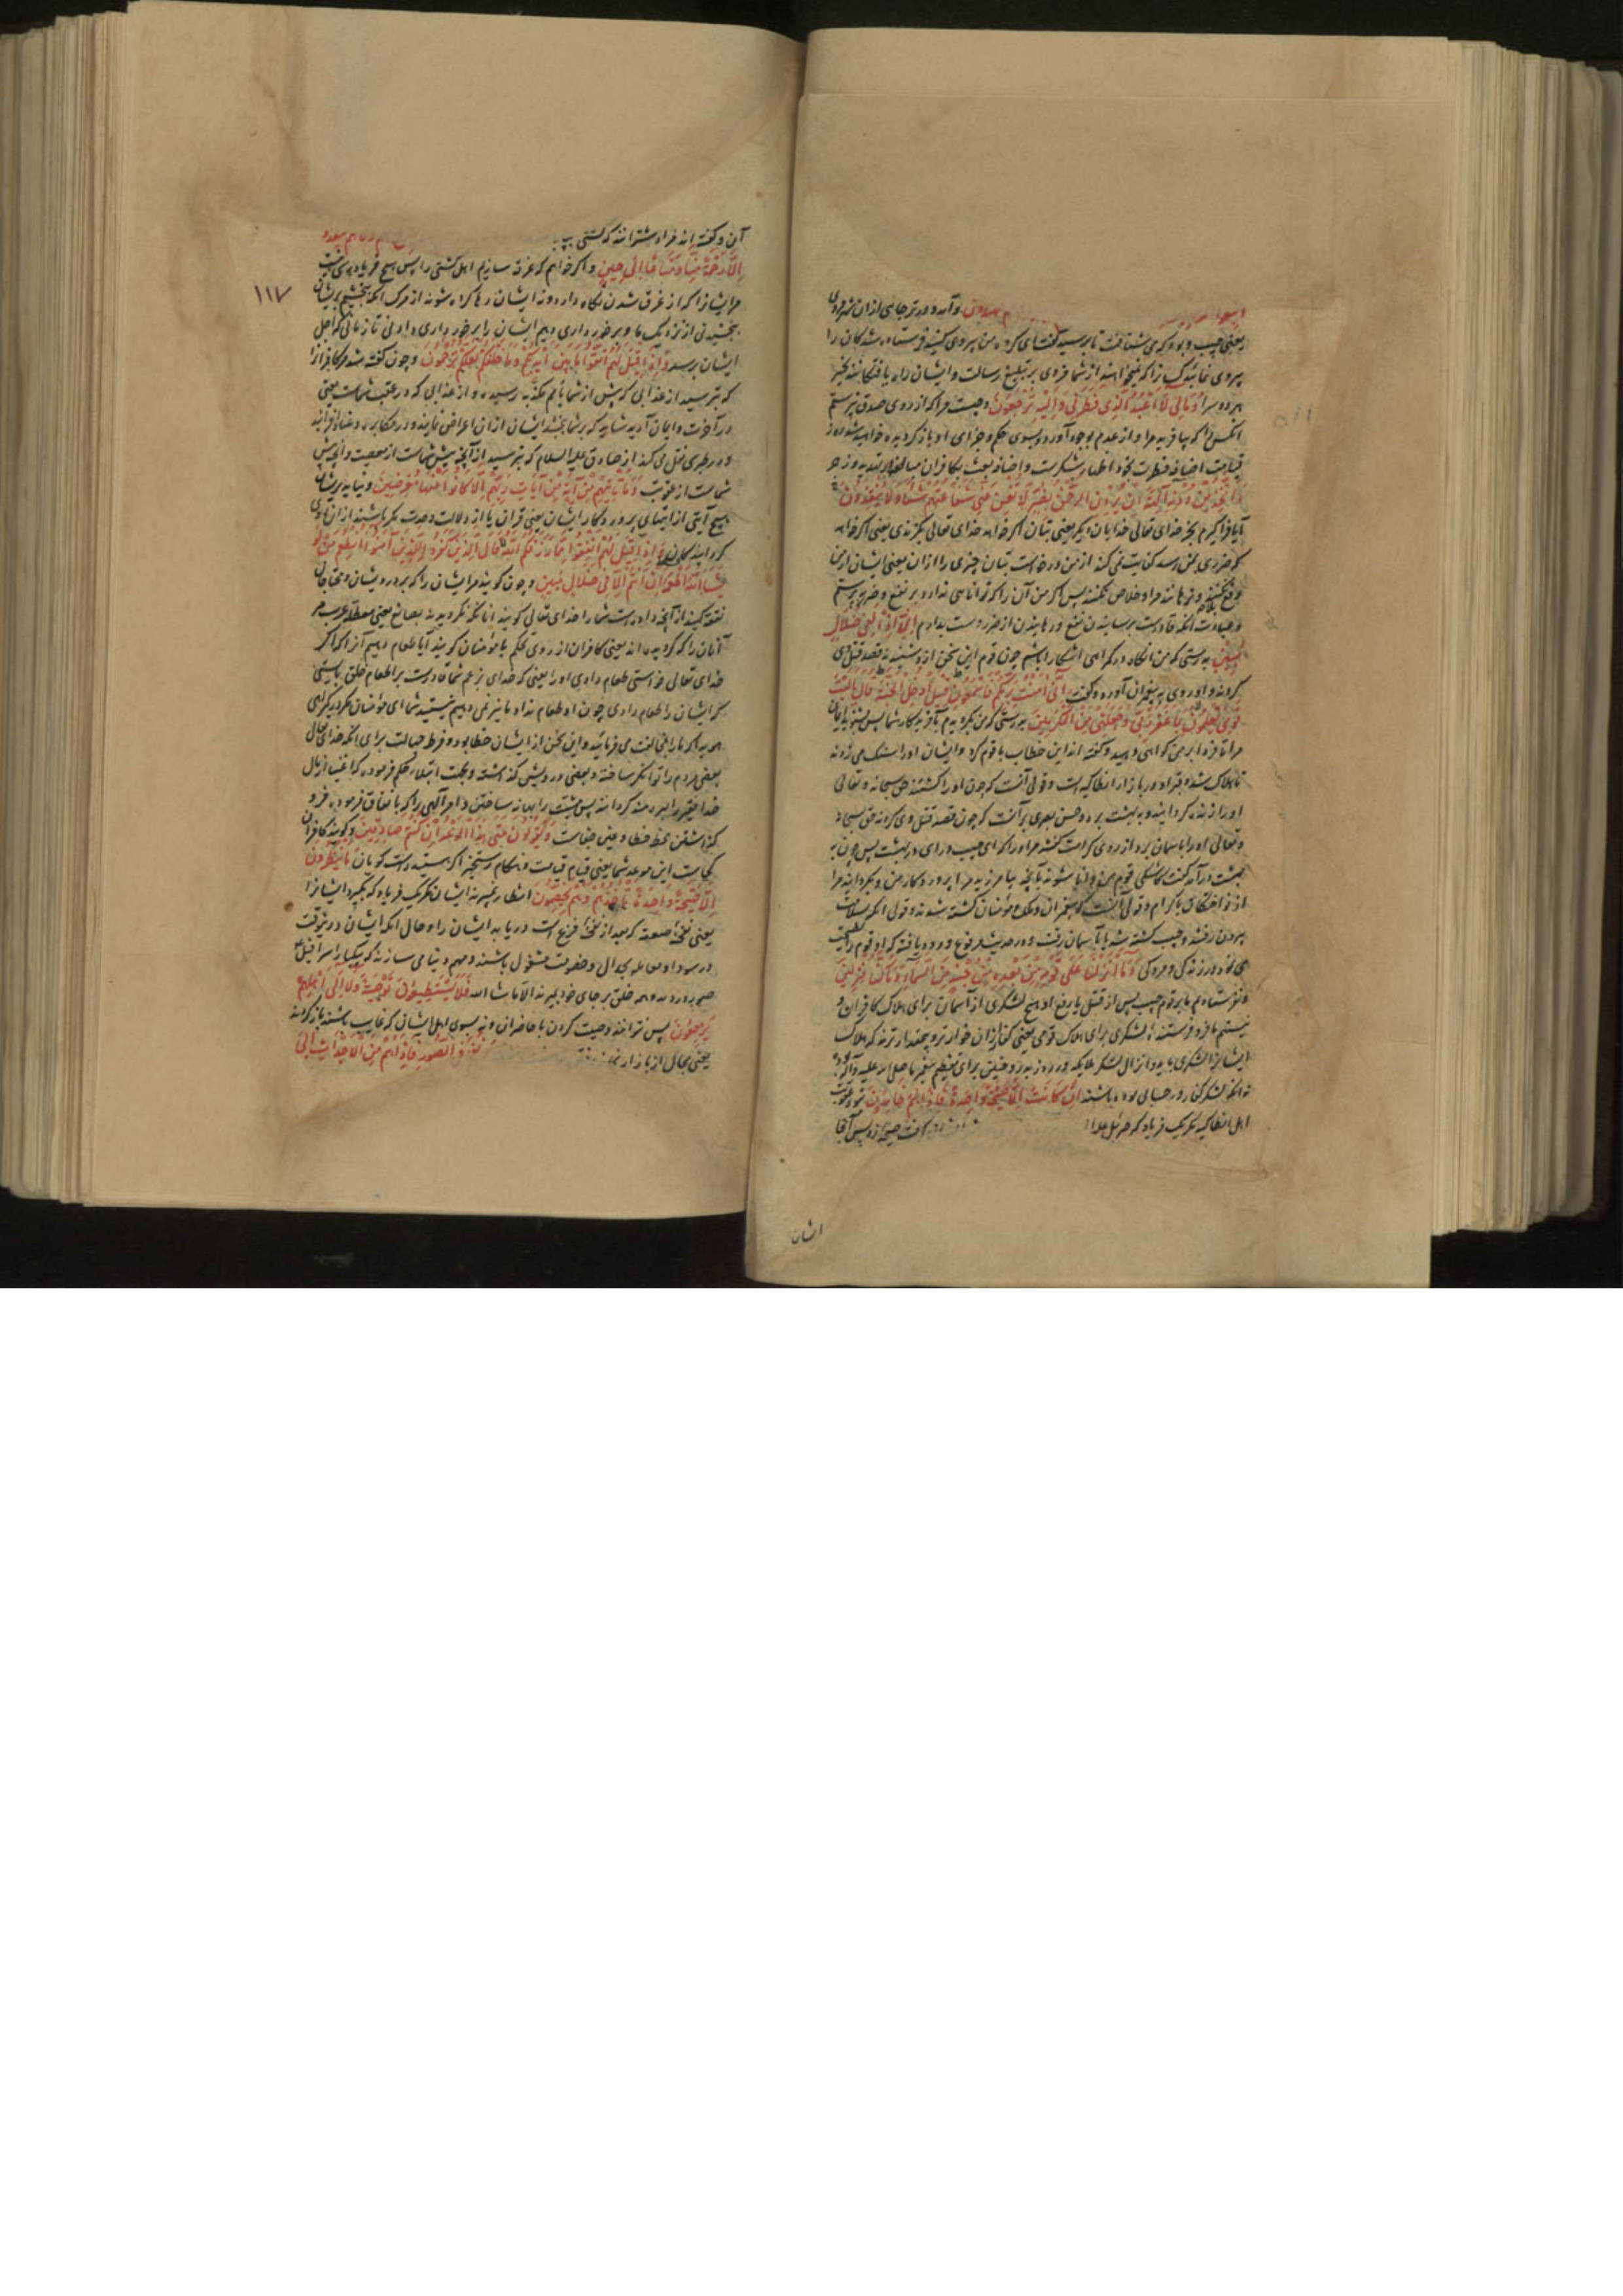 وآمد دورتر جائی ازان شهر مردی
یعنی حبیب و بود که می شتافت تا برسید گفت ای گروه من پیروی کنید فرستاده شدگان را
پیروی نمائید کسانی را که نمیخواهند از شما مزدی بر تبلیغ رسالت و ایشان راه یافتگانند بخیر
هر دو سرا وَمَا لِيَ لَا أَعْبُدُ الَّذِي فَطَرَنِي وَإِلَيْهِ تُرْجَعُونَ و چیست مرا که از روی صدق نپرستم
آنکس را که بیافرید مرا و از عدم بوجود آورد و بسوی حکم و جزای او باز گردیده خواهید شد در روز
قیامت اضافه فطرت بخود اظهار شکرست و اضافه بعث بکافران
ءَأَتَّخِذُ مِنْ دُونِهِ آلِهَةً إِنْ يُرِدْنِ الرَّحْمَنُ بِضُرٍّ لَا تُغْنِ عَنِّي شَفَاعَتُهُمْ شَيْئًا وَلَا يُنْقِذُونِ
آیا فراگیرم بجز خدای تعالی خدایان دیگر یعنی بتان اگر خواهد خدای تعالی بگزندی یعنی اگر خواهد
که ضرری بمن رسد کفایت نمی کند از من درخواست بتان چیزی را ازان یعنی ایشان از من
دفع نکنند و نرهانند مرا و خلاص نکنند پس اگر من آن را که توانائی ندارد بر نفع و ضر بپرستم
و عبادت آنکه قادرست برسانیدن نفع و رهانیدن از ضرر دست بدارم إِنِّي إِذًا لَفِي ضَلَالٍ
مُبِينٍ بدرستی که من آنگاه در گمراهی آشکارا باشم چون قوم این سخن از و شنیدند قصد قتل وی
کردند و او روی به پیغمبران آورده گفت إِنِّي آمَنْتُ بِرَبِّكُمْ فَاسْمَعُونِ قِيلَ ادْخُلِ الْجَنَّةَ قَالَ يَا لَيْتَ
قَوْمِي يَعْلَمُونَ بِمَا غَفَرَ لِي رَبِّي وَجَعَلَنِي مِنَ الْمُكْرَمِينَ بدرستی که من بگرویدم بآفریدگار شما پس بشنوید ایمان
مرا تا فردا بر من گواهی دهید و گفته اند این خطاب با قوم کرد و ایشان او را سنک می زدند
تا هلاک شد و قبر او در بازار انطاکیه است و قولی آنست که چون او را کشتند حق سبحانه و تعالی
او را زنده گردانید و به بهشت برد و حسن بصری بر آنست که چون قصد قتل وی کردند حق سبحانه
و تعالی او را باسمان برد از روی کرامت گفتند مر او را که ای حبیب درای در بهشت پس چون به
بهشت درآمد گفت کاشکی قوم من دانا شوند بآنچه بیامرزید مرا پروردگار من و بگردانید مرا
از نواختگان باکرام و قولی آنست که پیغمبران و ملک و مؤمنان کشته شدند و قولی آنکه بسلامت
بیرون رفتند و حبیب کشته شد یا بآسمان رفت و در حدیث مرفوع ورود یافته که او قوم را نصیحت
می کرد در زندگی و مردگی وَمَا أَنْزَلْنَا عَلَى قَوْمِهِ مِنْ بَعْدِهِ مِنْ جُنْدٍ مِنَ السَّمَاءِ وَمَا كُنَّا مُنْزِلِينَ
و نفرستادیم ما بر قوم حبیب پس از قتل یا رفع او هیچ لشکری از آسمان برای هلاک کافران و
نیستیم ما فرو فرستنده لشکری برای هلاک قومی یعنی کفار ازان خوارتر و بیمقدارترند که هلاک
ایشانرا لشکری باید و انزال لشکر ملایکه در روز بدر و حنین برای تعظیم پیغمبر ما صلی الله علیه وآله بود
نه آنکه لشکر کفار در حسابی بوده باشند إِنْ كَانَتْ إِلَّا صَيْحَةً وَاحِدَةً فَإِذَا هُمْ خَامِدُونَ نبود عقوبت
اهل انطاکیه مگر یک فریاد که جبرئیل
ایشان
آن و گفته اند مراد شترانند که کشتی
إِلَّا رَحْمَةً مِنَّا وَمَتَاعًا إِلَى حِينٍ و اگر خواهیم که غرق سازیم اهل کشتی را پس هیچ فریادرسی نیست
مر ایشانرا که از غرق شدن نگاه دارد و نه ایشان رهاکرده شوند از مرک مگر آنکه ببخشیم بر ایشان
بخشیدنی از نزدیک ما و برخورداری دهیم ایشان را برخورداری دادنی تا زمانی که اجل
ایشان برسد وَإِذَا قِيلَ لَهُمُ اتَّقُوا مَا بَيْنَ أَيْدِيكُمْ وَمَا خَلْفَكُمْ لَعَلَّكُمْ تُرْحَمُونَ و چون گفته شد مر کافرانرا
که بترسید از عذابی که پیش از شما بامم مکذبه رسیده و از عذابی که در عقب شماست یعنی
در آخرت و ایمان آرید شاید که بر شما ببخشند ایشان ازان اعراض نمایند و در مکابره و عناد افزایند
و در طبری نقل می کند از صادق علیه السلام که بترسید از آنچه پیش شماست از معصیت و آنچه پس
شماست از عقوبت وَمَا تَأْتِيهِمْ مِنْ آيَةٍ مِنْ آيَاتِ رَبِّهِمْ إِلَّا كَانُوا عَنْهَا مُعْرِضِينَ و نیاید بر ایشان
هیچ آیتی از آیتهای پروردگار ایشان یعنی قرآن یا از دلالت وحدت مگر باشند ازان روی
گردانیدگان وَإِذَا قِيلَ لَهُمْ أَنْفِقُوا مِمَّا رَزَقَكُمُ اللَّهُ قَالَ الَّذِينَ كَفَرُوا لِلَّذِينَ آمَنُوا أَنُطْعِمُ مَنْ لَوْ
يَشَاءُ اللَّهُ أَطْعَمَهُ إِنْ أَنْتُمْ إِلَّا فِي ضَلَالٍ مُبِينٍ و چون گویند مر ایشان را که بر درویشان و محتاجان
نفقه کنید از آنچه داده است شما را خدای تعالی گویند آنانکه نگرویدند بصانع یعنی معطله عرب مر
آنان را که گرویده اند یعنی کافران از روی تهکم با مؤمنان گویند آیا طعام دهیم آنرا که اگر
خدای تعالی خواستی طعام دادی او را یعنی که خدای بزعم شما قادرست بر اطعام خلق بایستی
که ایشان را طعام دادی چون او طعام نداد ما نیز نمی دهیم نیستید شما ای مؤمنان مگر در گمراهی
هویدا که ما را بمخالفت می فرمائید و این سخن از ایشان خطا بود و فرط جهالت برای آنکه خدای تعالی
بعضی مردم را توانگر ساخته و بعضی در درویشی گذاشته و بجهت ابتلا حکم فرموده که اغنیا از مال
خدا فقیر را بهره مند گردانند پس مشیت را بهانه ساختن و امر آلهی را که بانفاق فرموده فرو
گذاشتن محض خطا و عین جفاست وَيَقُولُونَ مَتَى هَذَا الْوَعْدُ إِنْ كُنْتُمْ صَادِقِينَ و گویند کافران
کجاست این موعد شما یعنی قیام قیامت و هنگام رستخیز اگر هستید راست گویان مَا يَنْظُرُونَ
إِلَّا صَيْحَةً وَاحِدَةً تَأْخُذُهُمْ وَهُمْ يَخِصِّمُونَ انتظار نمیبرند ایشان مگر یک فریاد که بگیرد ایشانرا
یعنی نفخهٔ صعقه که بعد از نفخهٔ فزع است دریابد ایشان را و حال آنکه ایشان در آنوقت
در سودا و معامله بجدال و خصومت مشغول باشند و مهم دنیا می سازند که یکبار اسرافیل
صور در دمد و همه خلق بر جای خود بمیرند الا ما شاء الله فَلَا يَسْتَطِيعُونَ تَوْصِيَةً وَلَا إِلَى أَهْلِهِمْ
يَرْجِعُونَ پس نتوانند وصیت کردن با حاضران و نه بسوی اهل ایشان که غایب باشند باز گردند
یعنی مجال از بازار الصُّورِ فَإِذَا هُمْ مِنَ الْأَجْدَاثِ إِلَى
۱۱۷